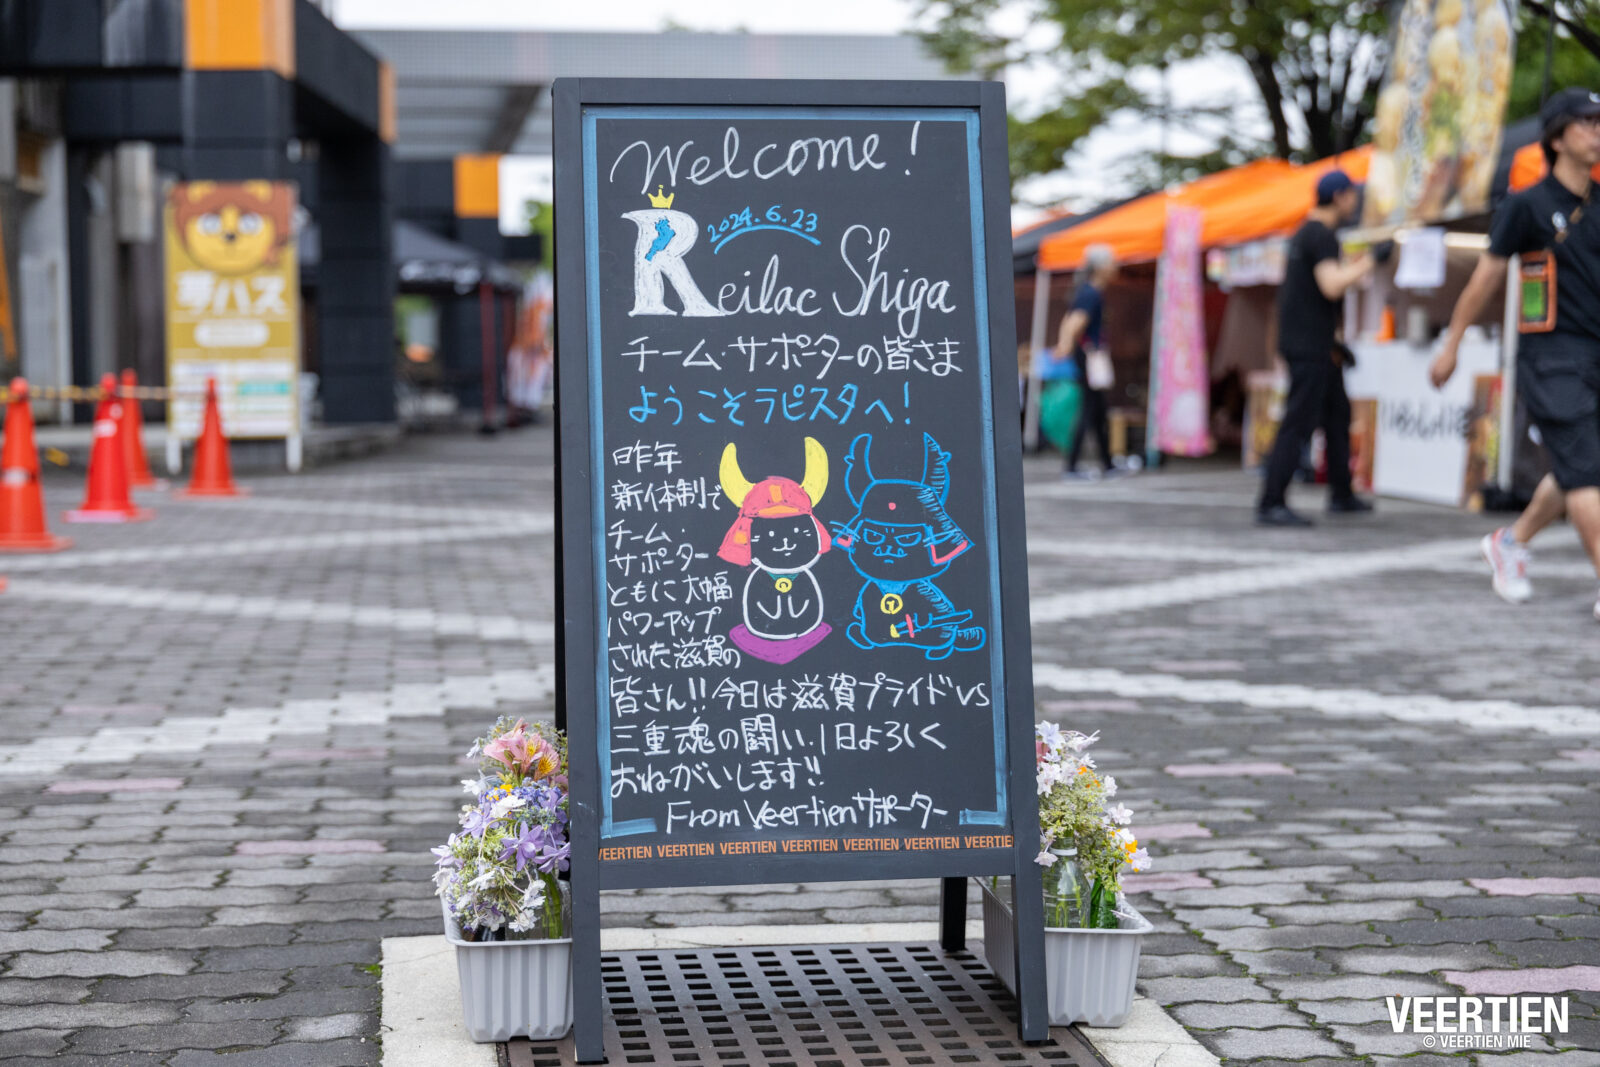 Welcome!
2024.6.23
Reilac Shiga
チーム・サポーターの皆さま
ようこそラピスタへ!
昨年
新体制で
チーム・
サポーター
ともに大幅
パワーアップ
された滋賀の
皆さん!!今日は滋賀プライドVS
三重魂の闘い.1日よろしく
おねがいします!!
From Veertienサポーター
VEERTIEN VEERTIEN VEERTIEN VEERTIEN VEERTIEN VEERTIEN VEERTIE
VEERTIEN
© VEERTIEN MIE